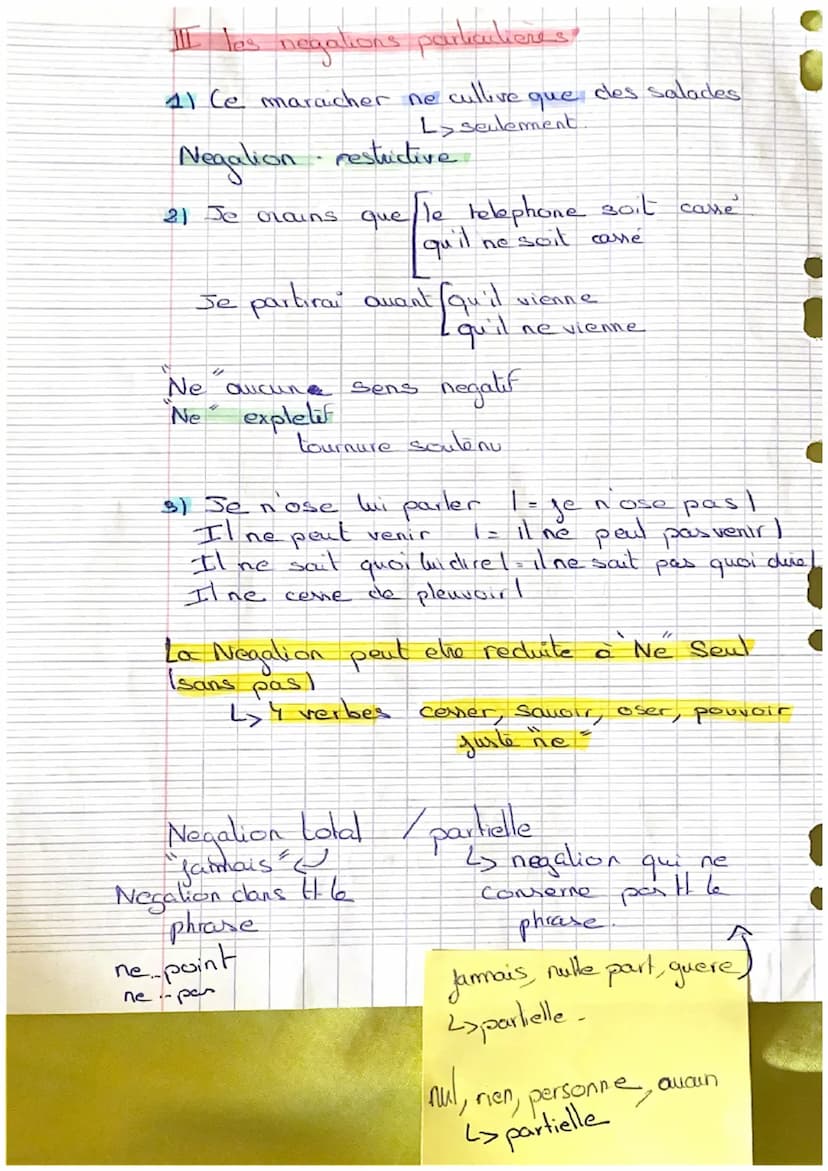 III les negations particulieres
1) Ce maraicher ne cultive que des salades
↳ seulement.
Negation restrictive
2) Je crains que le telephone soit cassé
qu'il ne soit cassé
Je partirai avant qu'il vienne
qu'il ne vienne
"Ne" aucune sens negatif
"Ne" expletif
tournure soutenu
3) Je n'ose lui parler (= je n'ose pas)
Il ne peut venir (= il ne peut pas venir)
Il ne sait quoi lui dire (= il ne sait pas quoi dire)
Il ne cesse de pleuvoir!
La Negation peut etre reduite à "Ne" Seul
(sans pas)
↳ 4 verbes cesser, savoir, oser, pouvoir
juste "ne"
Negation total / partielle
"jamais" ↵
Negation dans tt la
phrase
ne..point
ne..pas
↳ negation qui ne
conserne pas tt la
phrase.
jamais, nulle part, guere
↳ partielle.
nul, rien, personne, aucun
↳ partielle